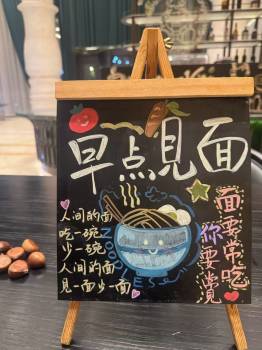 早点見面
人间的面
吃一碗
少一碗
人间的面
見一面少一面
面要常吃
你要常見
NOODLES